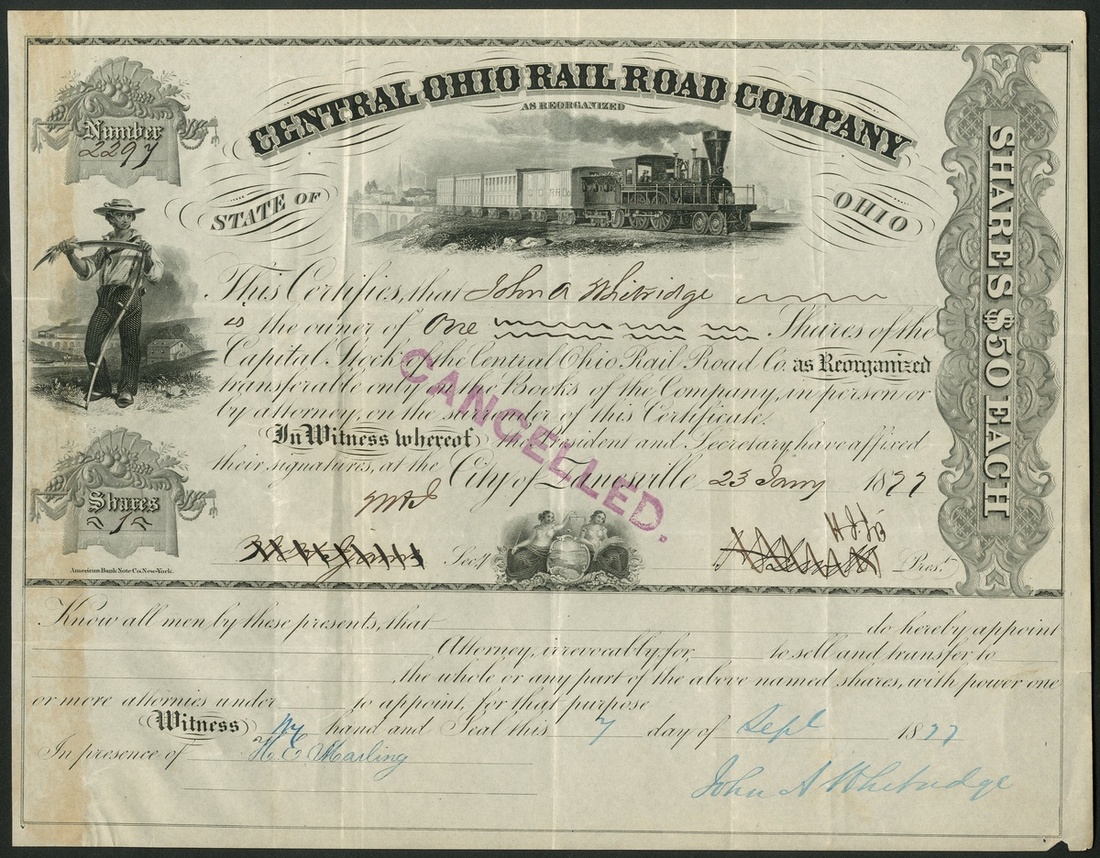 CENTRAL OHIO RAIL ROAD COMPANY
AS REORGANIZED
Number
2297
STATE OF OHIO
SHARES $50 EACH
This Certifies, that John A Whitridge
is the owner of One Shares of the
Capital Stock of the Central Ohio Rail Road Co. as Reorganized
transferable only on the Books of the Company, in person or
by attorney, on the surrender of this Certificate.
In Witness whereof the President and Secretary have affixed
their signatures, at the City of Zanesville 23 Jany 1877
CANCELLED.
Shares
1
Secy.
Prest.
American Bank Note Co. New-York.
Know all men by these presents, that do hereby appoint
Attorney, irrevocably, for to sell and transfer to
, the whole or any part of the above named shares, with power one
or more attornies under to appoint, for that purpose
Witness my hand and Seal this 7 day of Sept 1877
In presence of H. E. Marling
John A Whitridge